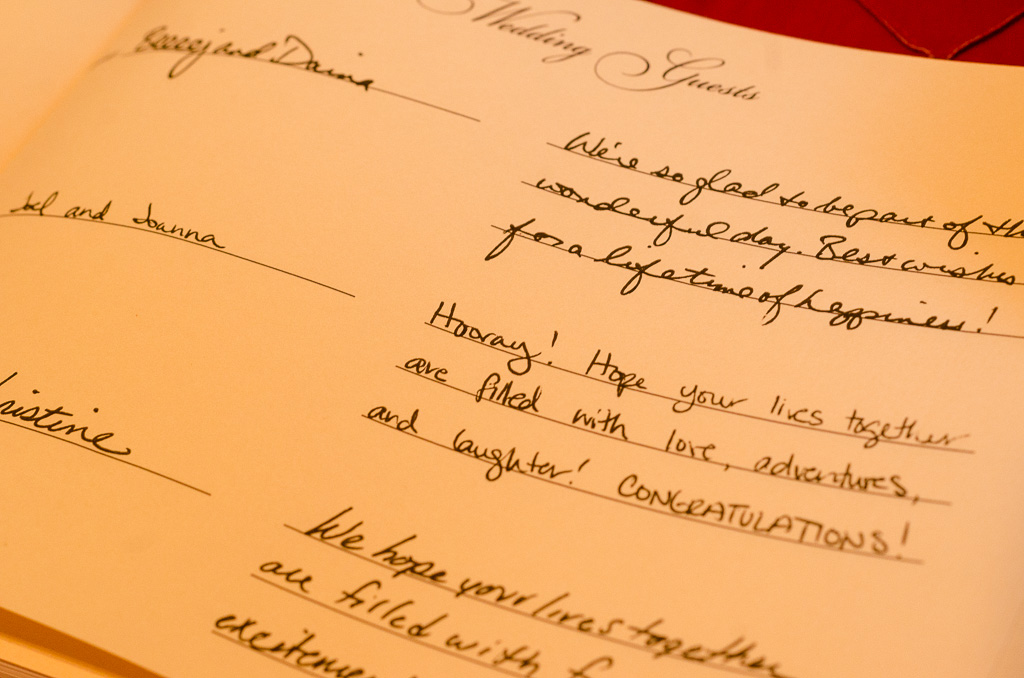 Wedding Guests
and Daina
We're so glad to be part of th
wonderful day. Best wishes
for a lifetime of happiness!
and Joanna
Hooray! Hope your lives together
are filled with love, adventures,
and laughter! CONGRATULATIONS!
ristine
We hope your lives together
are filled with f
exciteme